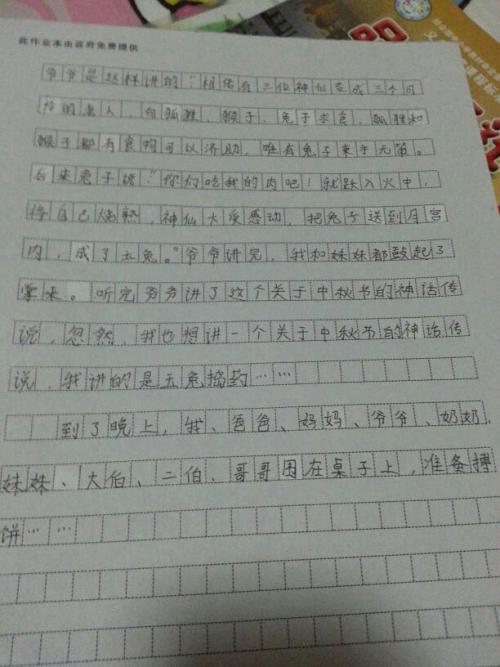 此作业本由政府免费提供
爷爷是这样讲的：“相传有三位神仙变成三个可
怜的老人，向狐狸、猴子、兔子求食，狐狸和
猴子都有食物可以济助，唯有兔子束手无策。
后来兔子说：“你们吃我的肉吧！就跃入火中，
将自己烧熟，神仙大受感动，把兔子送到月宫
内，成了玉兔。”爷爷讲完，我和妹妹都鼓起了
掌来。听完爷爷讲了这个关于中秋节的神话传
说，忽然，我也想讲一个关于中秋节的神话传
说，我讲的是玉兔捣药……
到了晚上，我、爸爸、妈妈、爷爷、奶奶、
妹妹、大伯、二伯、哥哥围在桌子上，准备搏
饼……